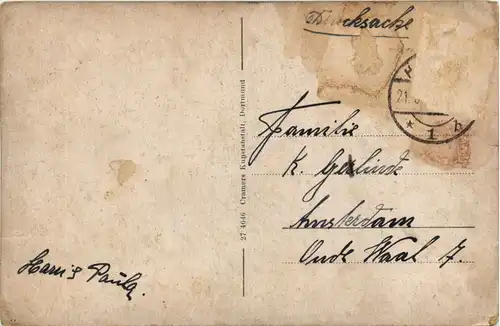 Drucksache
21.
* 1 b
Familie
K. Gerlinde
Amsterdam
Oude Waal 7.
27 4646 Cramers Kunstanstalt, Dortmund
Paula.